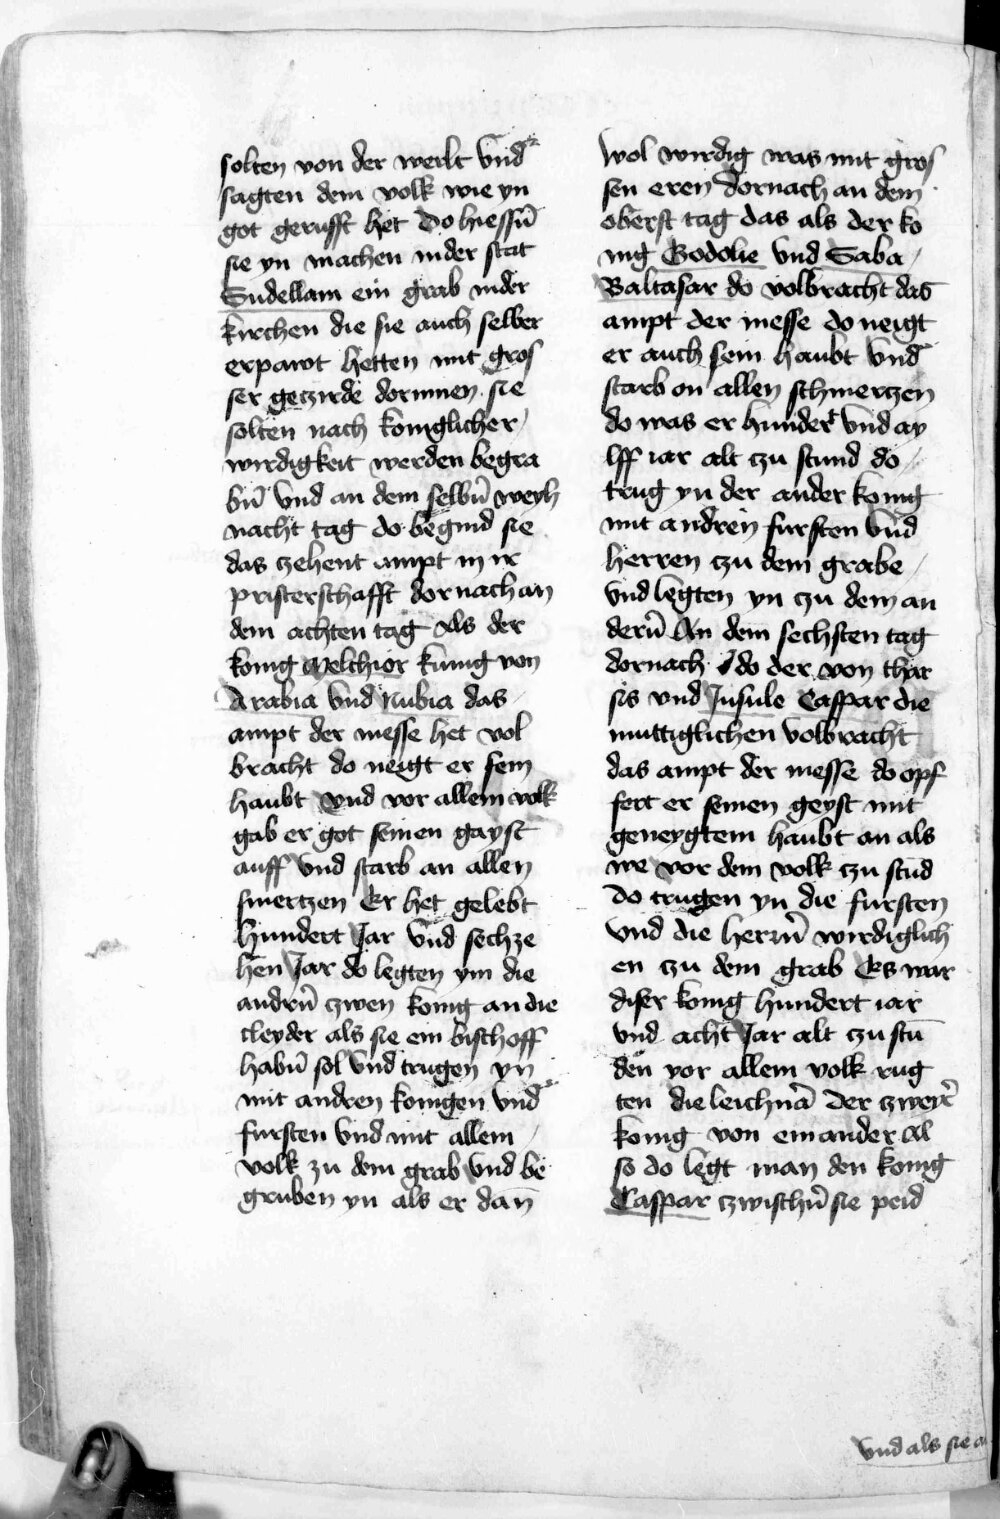 solten von der werlt vnd
sagten dem volk wie yn
got gerufft het Do hiessn̄
sie yn machen inder stat
Sudellam ein grab inder
kirchen die sie auch selber
erpawt hetten mit gros
ser geczirde dorinnen sie
solten nach koniglicher
wirdigkeit werden begra
bn̄ vnd an dem selbn̄ weyh
nacht tag do begund sie
das zehent ampt in ir
pristerschafft dornach an
dem achten tag Als der
konig Melchior kunig von
Arabia vnd Nubia das
ampt der messe het vol
bracht do neigt er sein
haubt vnd vor allem volk
gab er got seinen gayst
auff vnd starb an allen
smertzen Er het gelebt
hundert Jar vnd sechze
hen Jar do legten ym die
andrn̄ zwen konig an die
cleyder als sie ein bischoff
habn̄ sol vnd trugen yn
mit andren konigen vnd
fursten vnd mit allem
volk zu dem grab vnd be
gruben yn als er dan̄
wol wirdig was mit gros
sen eren dornach an dem
oberst tag das als der ko
nig Godolie vnd Saba
Baltasar do volbracht das
ampt der messe do neigt
er auch sein haubt vnd
starb on allen schmertzen
do was er hundert vnd ay
lff iar alt czu stund do
trug yn der ander konig
mit andren fursten vnd
herren czu dem grabe
vnd legten yn czu dem an
dern̄ An dem sechsten tag
dornach do der von thar
sis vnd Jnsule Caspar die
muttiglichen volbracht
das ampt der messe do opf
fert er seinen geyst mit
geneygtem haubt an als
we vor dem volk czu stūd
Do trugen yn die fursten
vnd die herrn̄ wirdiglich
en czu dem grab Es war
diser konig hundert iar
vnd acht Jar alt czu stū
den vor allem volk rug
ten die leichnā der zweyr̄
konig von einander Al
so do legt man den konig
Caspar czwischn̄ sie peid
vnd als sie